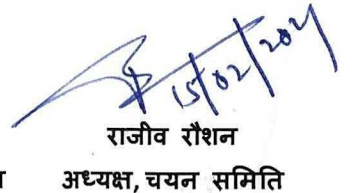 15/02/2021
राजीव रौशन
अध्यक्ष, चयन समिति